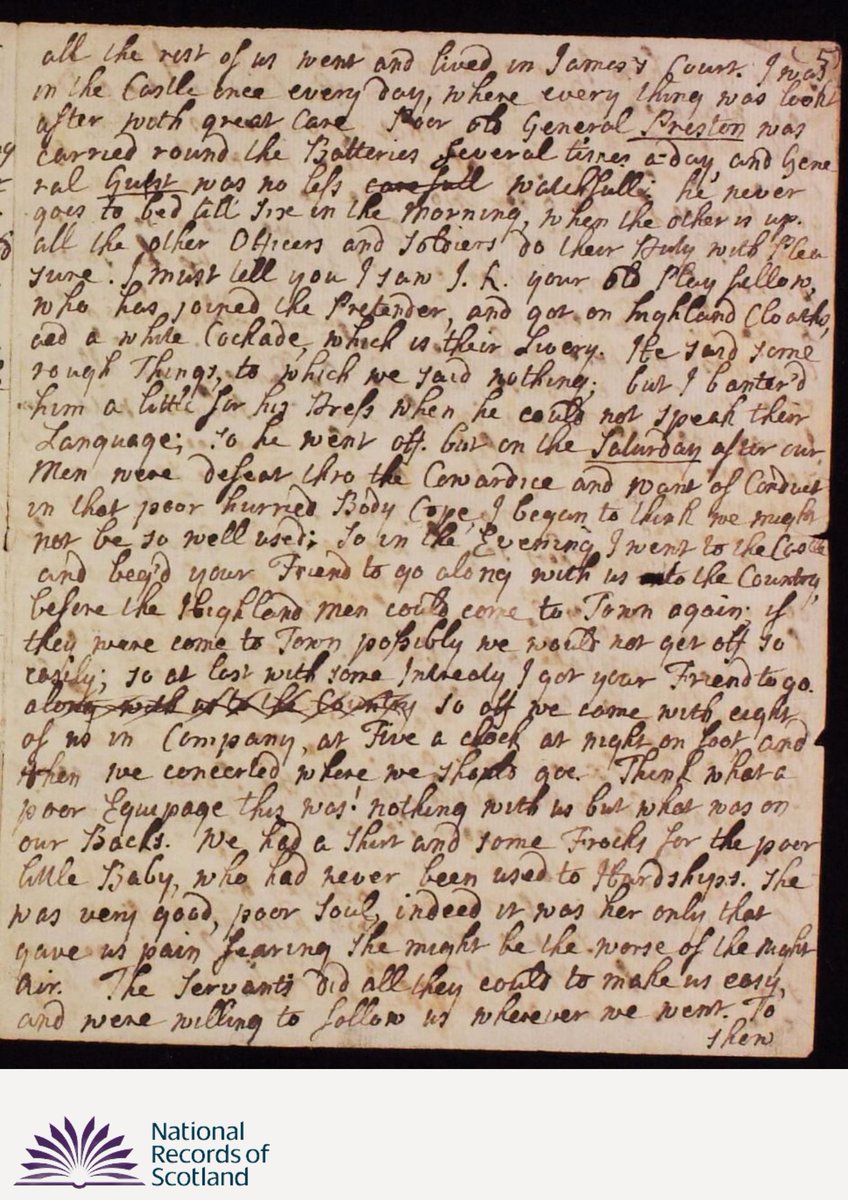 5
all the rest of us went and lived in James's Court. I was
in the Castle once every day, where every thing was lookt
after with great Care Poor old General Preston was
carried round the Batteries several times a-day, and Gene
ral Guest was no less carefull watchfull; he never
goes to bed till Sixe in the Morning, when the other is up.
all the other Officers and Soldiers do their Duty with Plea
sure. I must tell you I saw J. H. your old Play fellow,
who has joined the Pretender, and got on highland Cloaths,
and a white Cockade, which is their Livery. He said some
rough Things, to which we said nothing; but I banter'd
him a little for his Dress when he could not speak their
Language; so he went off. but on the Saturday after our
Men were defeat thro the Cowardice and want of Conduct
in that poor hurried Body Cope, I began to think we might
not be so well used; So in the Evening I went to the Castle
and beg'd your Friend to go along with us into the Country,
before the Highland men could come to Town again; if
they were come to Town possibly we would not get off so
easily; so at last with some Intreaty I got your Friend to go.
along with us to the Country so off we came with eight
of us in Company, at Five a clock at night on foot and
then we concerted where we should goe. Think what a
poor Equipage this was! nothing with us but what was on
our Backs. We had a Shirt and some Frocks for the poor
little Baby, who had never been used to Hardships. She
was very good, poor Soul, indeed it was her only that
gave us pain fearing She might be the worse of the night
Air. The Servants did all they could to make us easy,
and were willing to follow us wherever we went. To
shew
National
Records of
Scotland